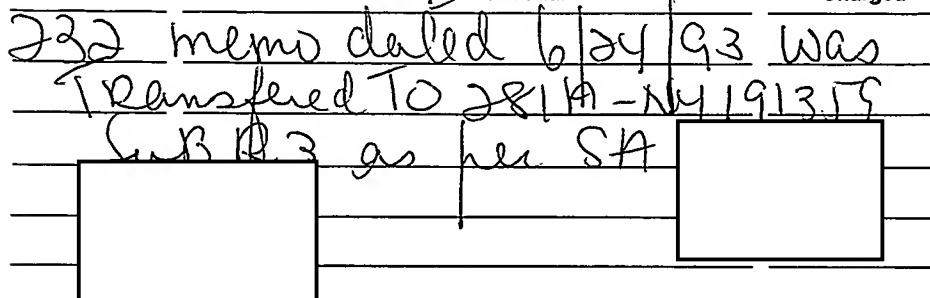 Charged
232 memo dated 6/24/93 was
Transfered To 281A-NY191359
Sub A.3 as per SA